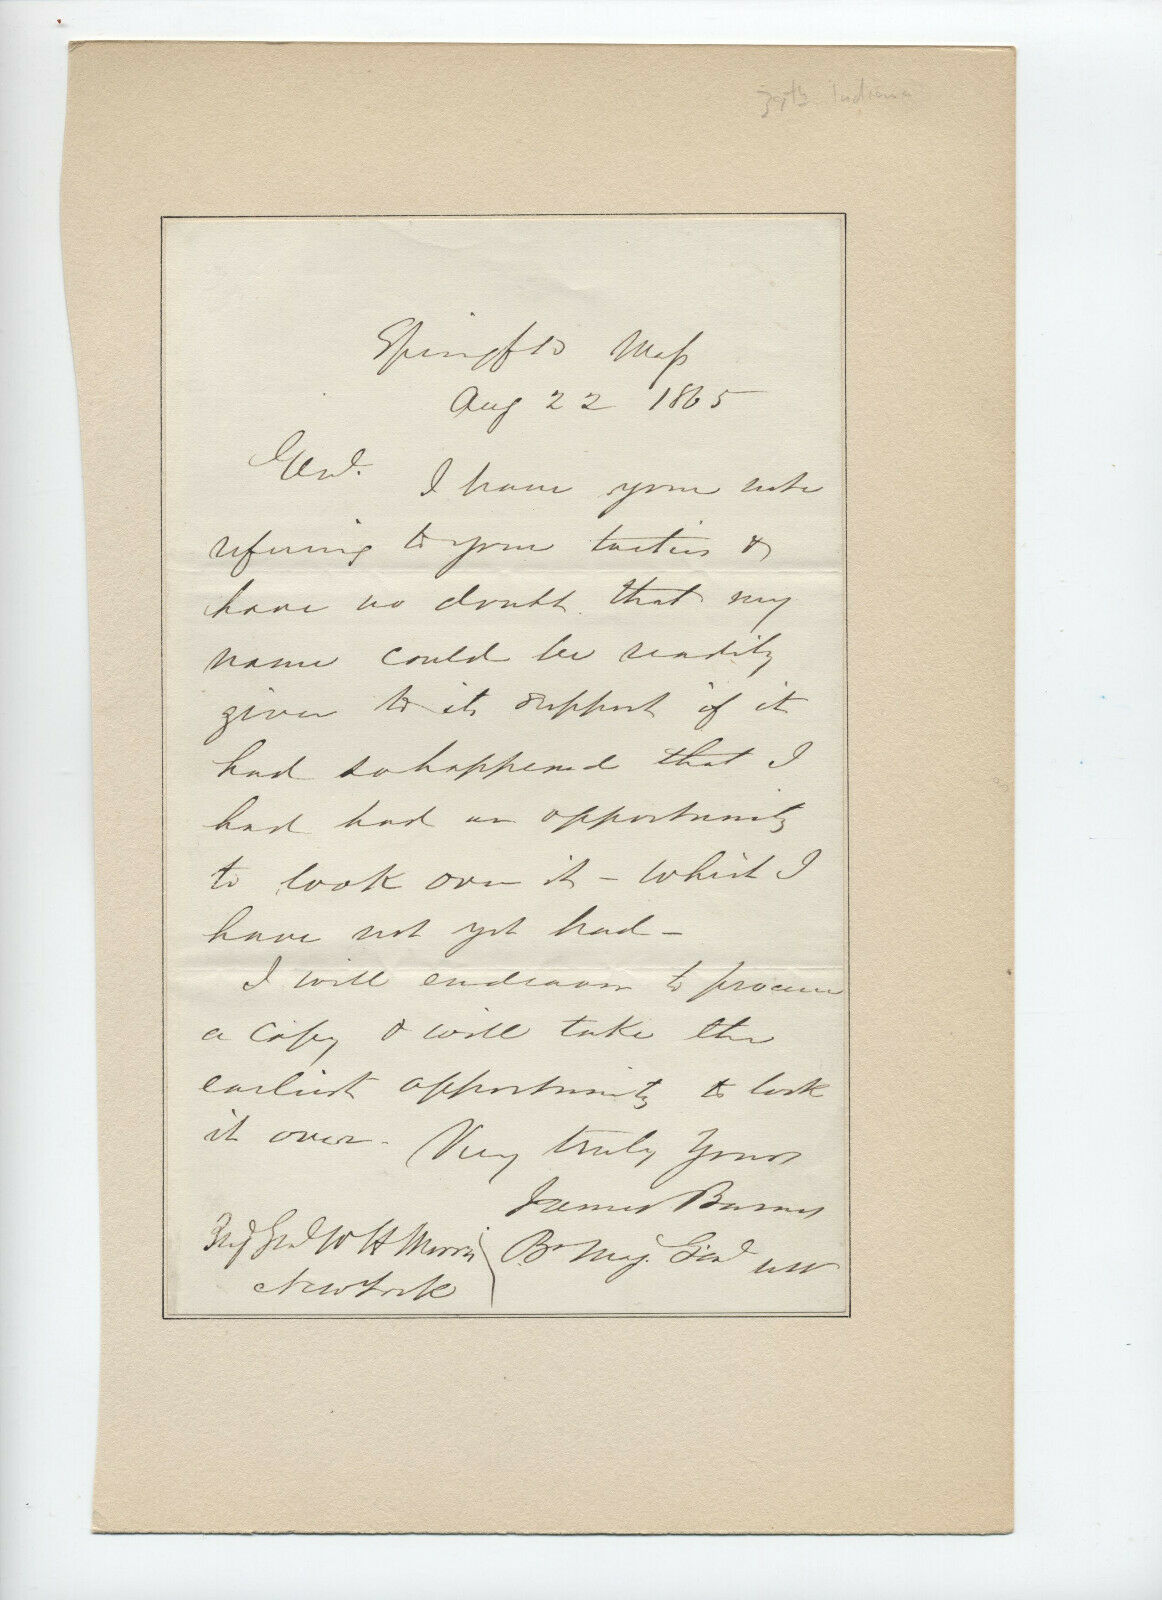 Indiana
Springfld Mass
Aug 22 1865
Genl. I have your note
referring to your tactics &
have no doubt that my
name could be readily
given to its support if it
had so happened that I
had had an opportunity
to look over it – which I
have not yet had –
I will endeavor to procure
a copy & will take the
earliest opportunity to look
it over – Very truly Yours
James Barnes
Brig Genl W H Morris Bv Maj. Genl
New York